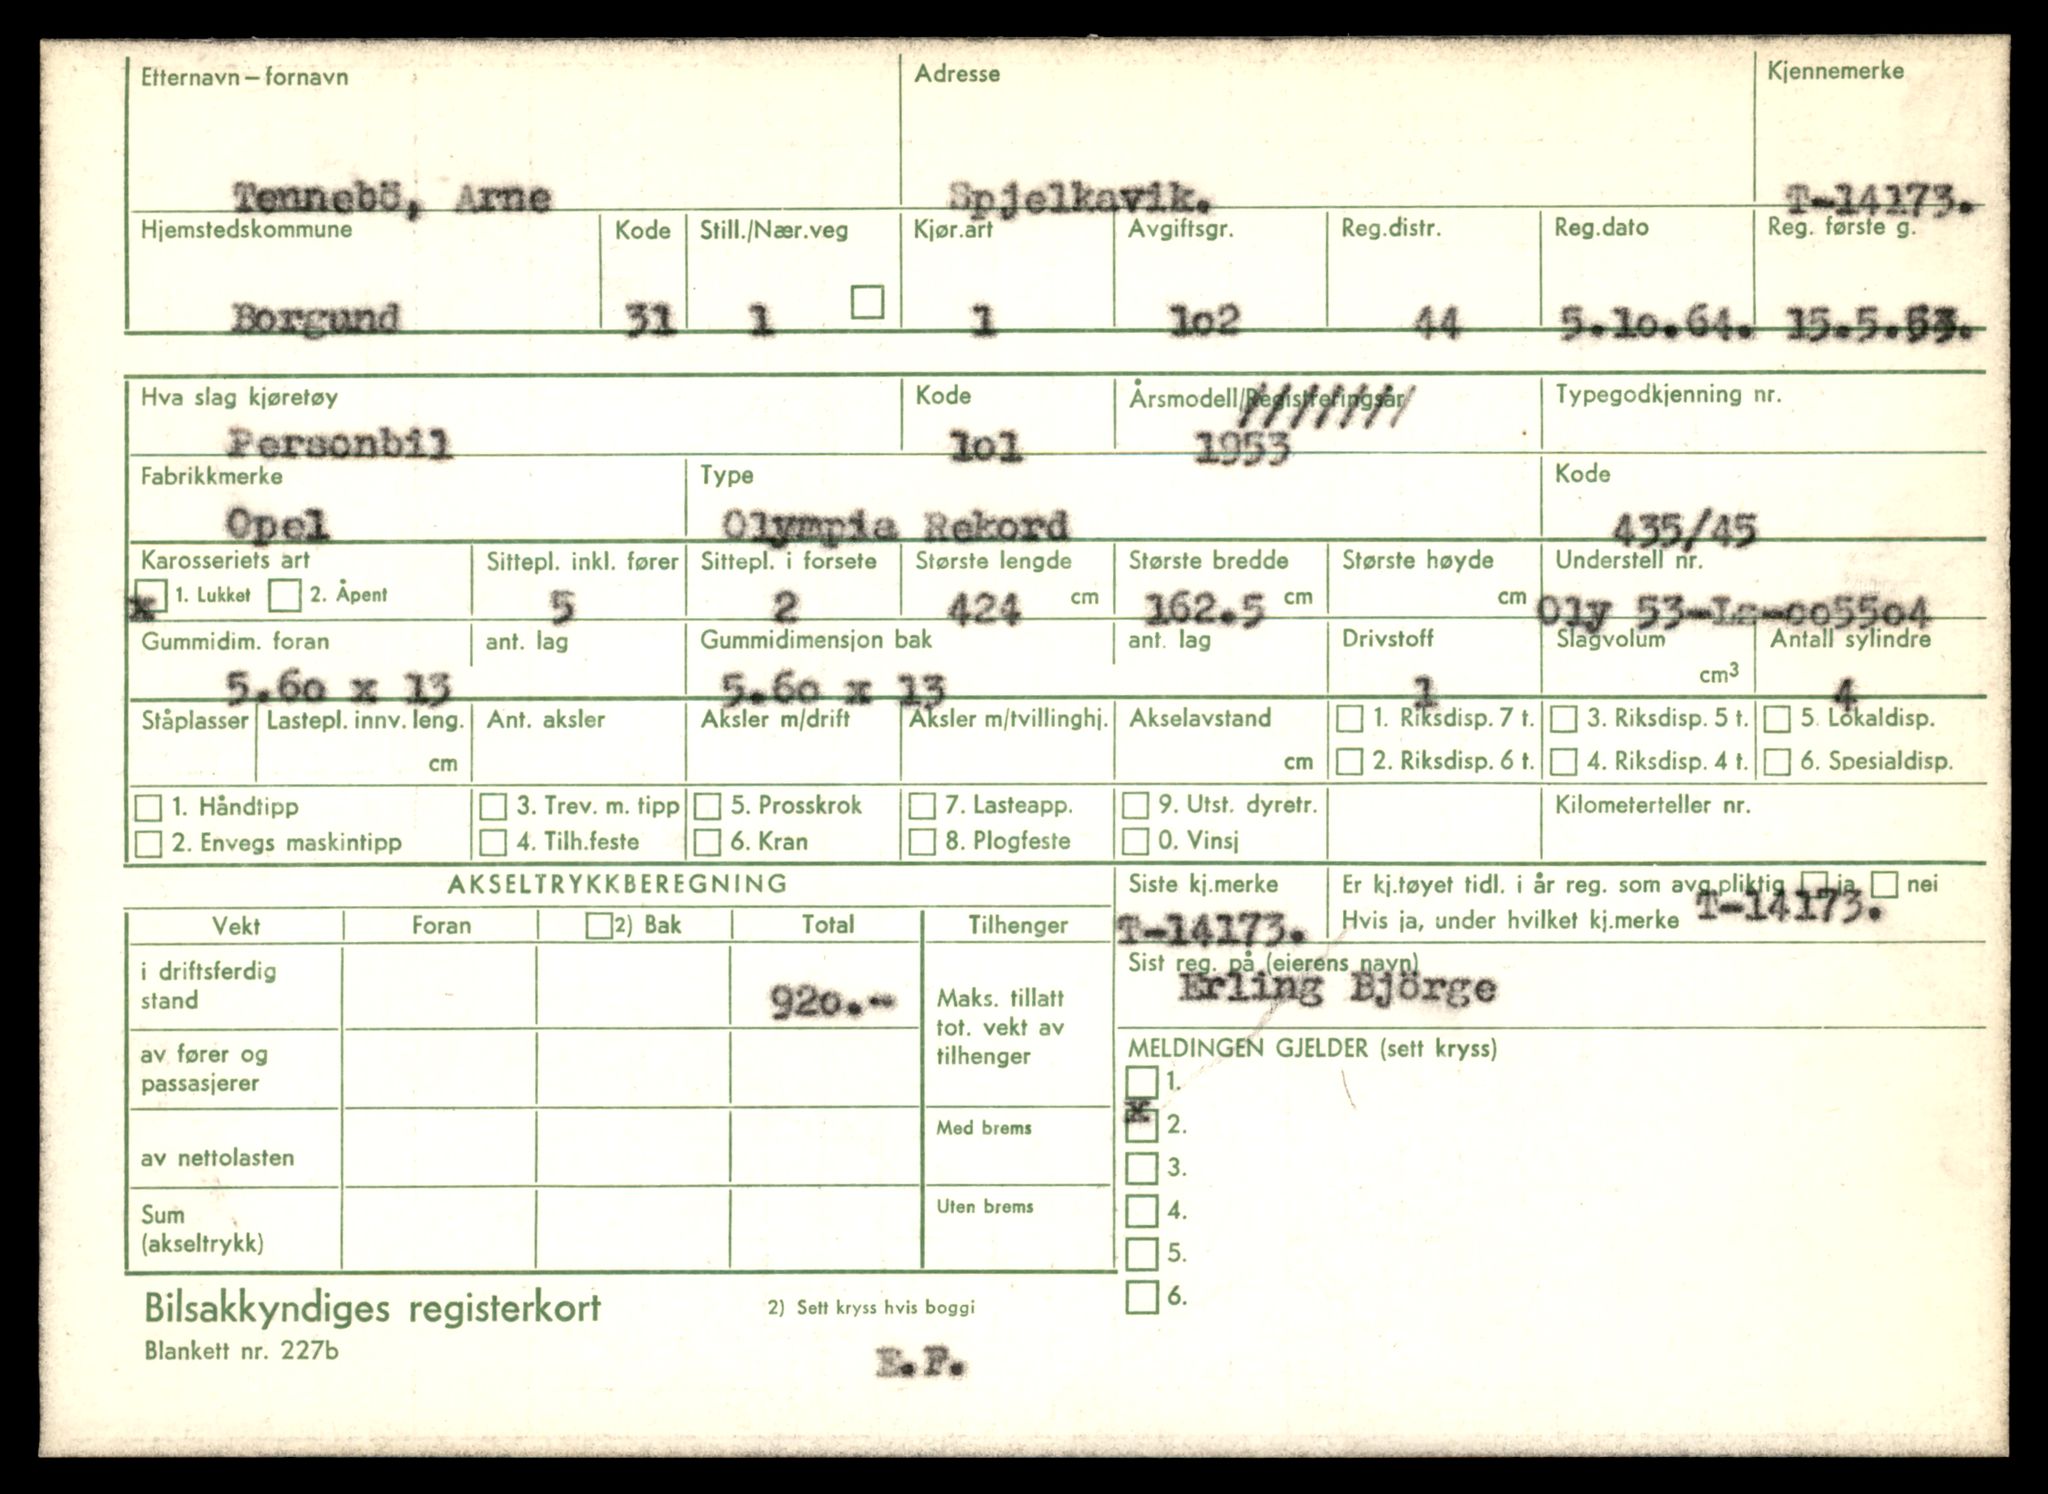 Etternavn – fornavn Adresse Kjennemerke
Tennebö, Arne Spjelkavik. T-14173.
Hjemstedskommune Kode Still./Nær.veg Kjør.art Avgiftsgr. Reg.distr. Reg.dato Reg. første g.
Borgund 31 1 1 1o2 44 5.1o.64. 15.5.53.
Hva slag kjøretøy Kode Årsmodell/Registreringsår Typegodkjenning nr.
Personbil 1o1 1953
Fabrikkmerke Type Kode
Opel Olympia Rekord 435/45
Karosseriets art Sittepl. inkl. fører Sittepl. i forsete Største lengde Største bredde Største høyde Understell nr.
x 1. Lukket 2. Åpent 5 2 424 cm 162.5 cm cm Oly 53-Ls-oo55o4
Gummidim. foran ant. lag Gummidimensjon bak ant. lag Drivstoff Slagvolum Antall sylindre
5.6o x 13 5.6o x 13 1 cm3 4
Ståplasser Lastepl. innv. leng. Ant. aksler Aksler m/drift Aksler m/tvillinghj. Akselavstand 1. Riksdisp. 7 t. 3. Riksdisp. 5 t. 5. Lokaldisp.
cm cm 2. Riksdisp. 6 t. 4. Riksdisp. 4 t. 6. Spesialdisp.
1. Håndtipp 3. Trev. m. tipp 5. Prosskrok 7. Lasteapp. 9. Utst. dyretr. Kilometerteller nr.
2. Envegs maskintipp 4. Tilh.feste 6. Kran 8. Plogfeste 0. Vinsj
AKSELTRYKKBEREGNING Siste kj.merke Er kj.tøyet tidl. i år reg. som avg.pliktig ja nei
Vekt Foran 2) Bak Total Tilhenger T-14173. Hvis ja, under hvilket kj.merke T-14173.
i driftsferdig stand 92o.- Maks. tillatt tot. vekt av tilhenger
Sist reg. på (eierens navn)
Erling Björge
av fører og passasjerer
MELDINGEN GJELDER (sett kryss)
1.
x 2.
av nettolasten Med brems
3.
Sum (akseltrykk) Uten brems
4.
5.
6.
Bilsakkyndiges registerkort 2) Sett kryss hvis boggi
Blankett nr. 227b
E.F.